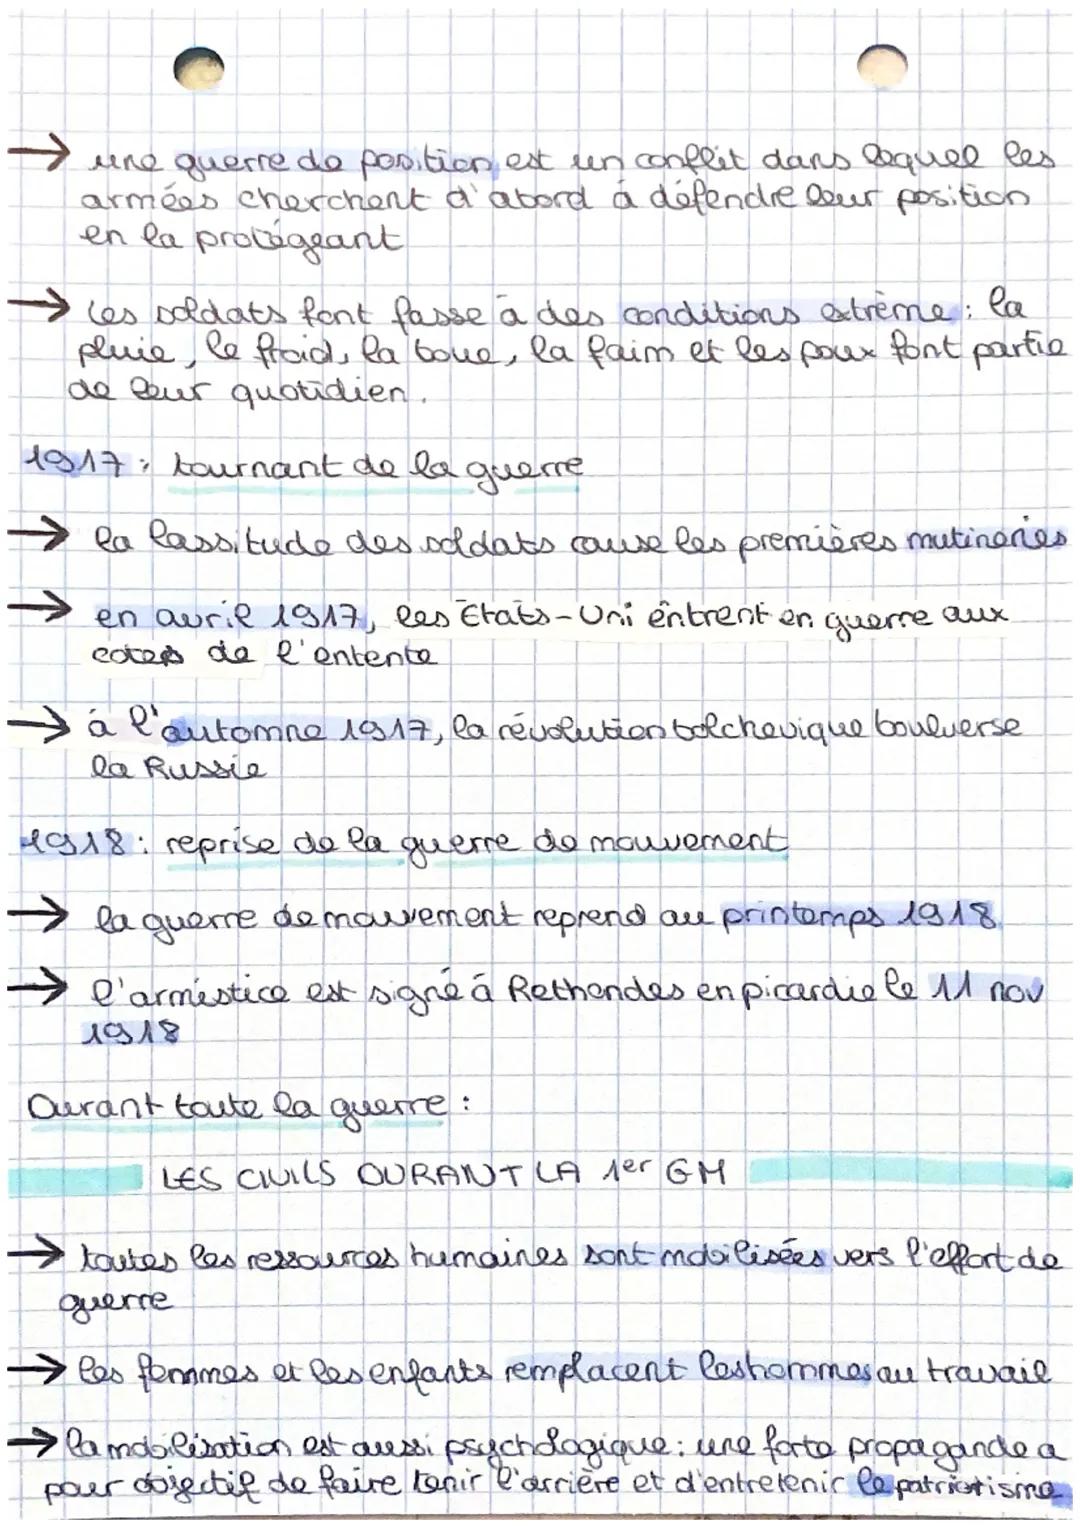 → une guerre de position est un conflit dans lequel les
armées cherchent d'abord à défendre leur position
en la protégeant
→ les soldats font fasse à des conditions extrême : la
pluie, le froid, la boue, la faim et les poux font partie
de leur quotidien.
1917 : tournant de la guerre
→ la lassitude des soldats cause les premières mutineries
→ en avril 1917, les États-Uni entrent en guerre aux
coters de l'entente
→ à l'automne 1917, la révolution bolchevique boulverse
la Russie
1918 : reprise de la guerre de mouvement
→ la guerre de mouvement reprend au printemps 1918
→ l'armistice est signé à Rethondes en picardie le 11 nov
1918
Durant toute la guerre :
LES CIVILS DURANT LA 1er GM
→ toutes les ressources humaines sont mobilisées vers l'effort de
guerre
→ les femmes et les enfants remplacent les hommes au travail
→ la mobilisation est aussi psychologique : une forte propagande a
pour objectif de faire tenir l'arrière et d'entretenir le patriotisme